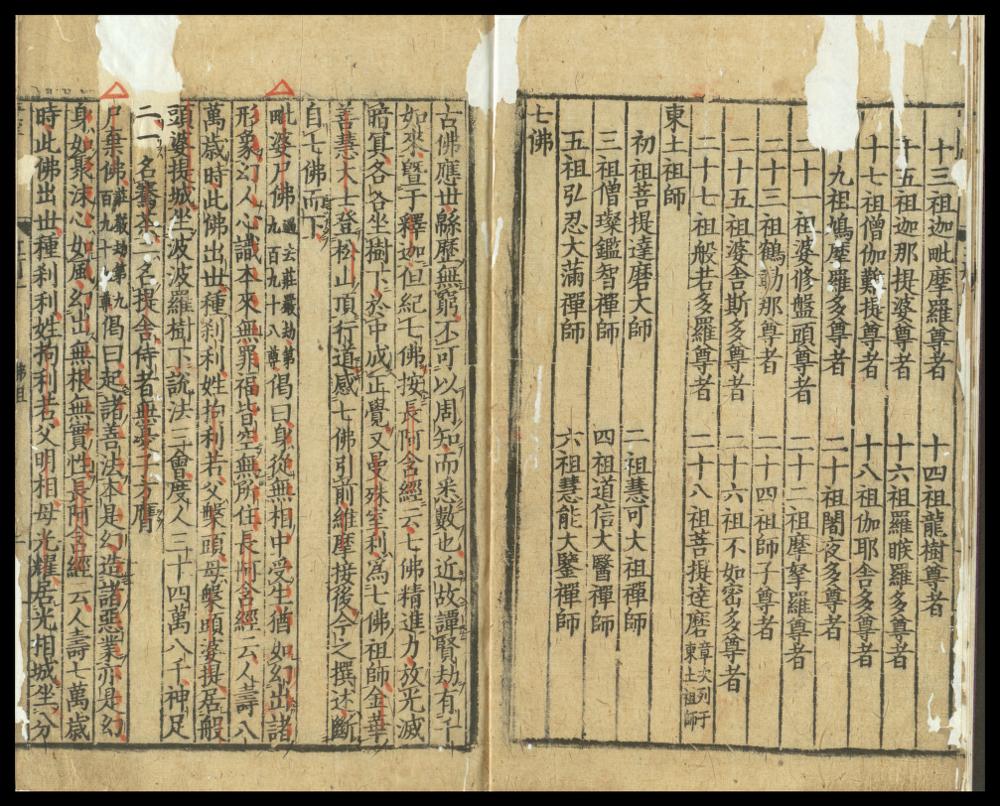 十三祖迦毗摩羅尊者　十四祖龍樹尊者
十五祖迦那提婆尊者　十六祖羅睺羅多尊者
十七祖僧伽難提尊者　十八祖伽耶舍多尊者
九祖鳩摩羅多尊者　二十祖闍夜多尊者
十一祖婆修盤頭尊者　二十二祖摩拏羅尊者
二十三祖鶴勒那尊者　二十四祖師子尊者
二十五祖婆舍斯多尊者　二十六祖不如密多尊者
二十七祖般若多羅尊者　二十八祖菩提達磨章次列于東土祖師
東土祖師
初祖菩提達磨大師　二祖慧可大祖禪師
三祖僧璨鑑智禪師　四祖道信大醫禪師
五祖弘忍大滿禪師　六祖慧能大鑒禪師
七佛
古佛應世緜歷無窮不可以周知而悉數也近故譚賢劫有千
如來曁于釋迦但紀七佛按長阿含經云七佛精進力放光滅
暗冥各各坐樹下於中成正覺又曼殊室利爲七佛祖師金華
善慧大士登松山頂行道感七佛引前維摩接後今之撰述斷
自七佛而下
毗婆尸佛過去莊嚴劫第九百九十八尊偈曰身從無相中受生猶如幻出諸
形象幻人心識本來無罪福皆空無所住長阿含經云人壽八
萬歲時此佛出世種刹利姓拘利若父槃頭母槃頭婆提居般
頭婆提城坐波波羅樹下說法三會度人三十四萬八千神足
二一名騫茶二名提舍侍者無憂子方膺
尸棄佛莊嚴劫第九百九十九尊偈曰起諸善法本是幻造諸惡業亦是幻
身如聚沫心如風幻出無根無實性長阿含經云人壽七萬歲
時此佛出世種刹利姓拘利若父明相母光耀居光相城坐分
佛祖